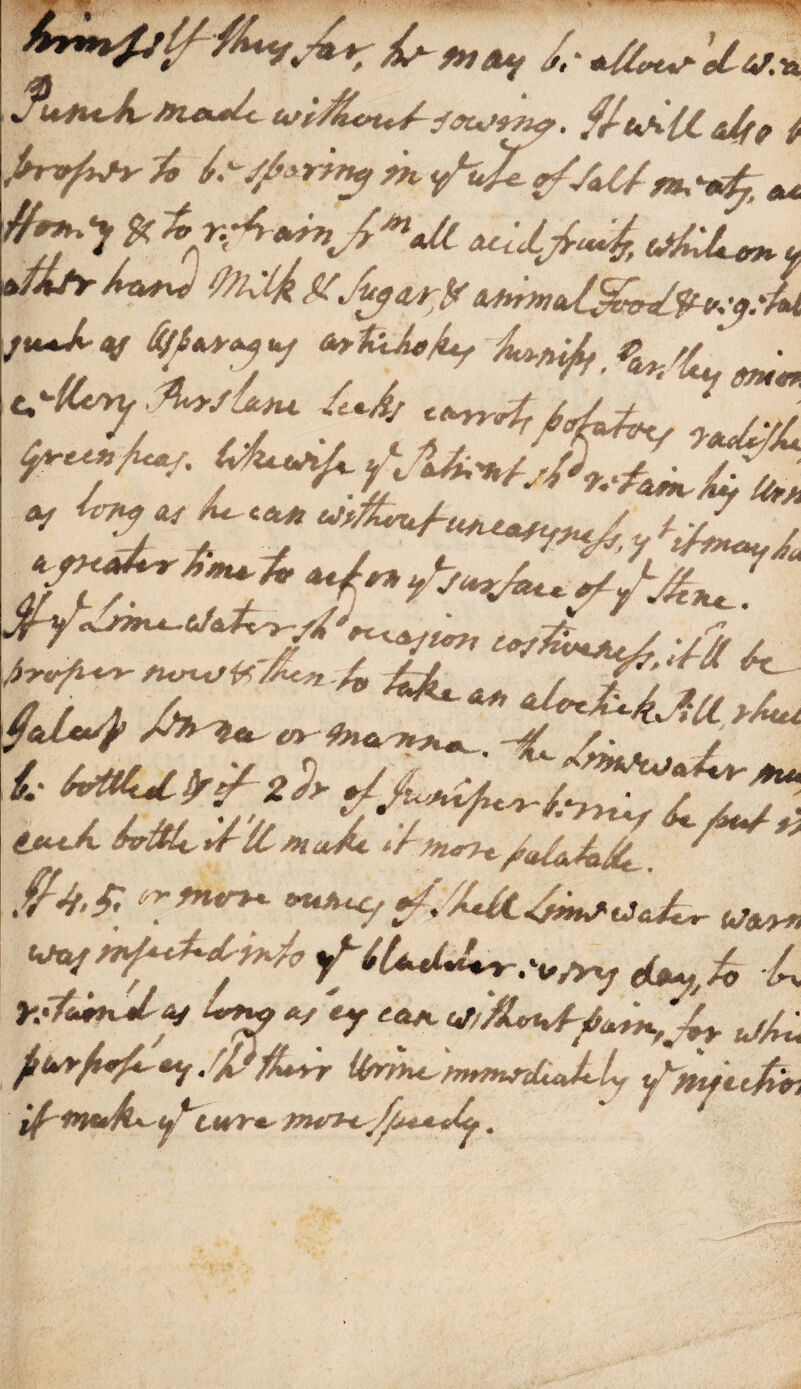 himself thus far, he may be allow'd w. a
Punch made without sowing. It will also b
proper to be sparing in yͤ use of salt meats, a
Honey & to refrain frᵐ all acid fruits, while on y
other hand Milk & Sugar, & animal Food & vegetab
such as Asparagus artichokes turnips, Parsley onion
cellery Purslane Leeks carrots potatoes radishe
Green peas. likewise yͤ Patient shᵈ retain his Urin
as long as he can without uneasyness, yᵗ it may ha
a greater time to act on yͤ surface of yͤ Stone.
If yͤ Lime water shᵈ occasion costiveness, it'll be
proper now & then to take an aloetick Pill, rhub
Jalap Senna or manna. The Limewater mu
be bottled & if 2 dr of Juniper berries be put in
each bottle it'll make it more palatable.
If 4, 5, or more ounces of shell Limewater warm
was injected into yͤ bladder every day, to be
retain'd as long as ey can without pain, for whi
purpose ey shᵈ their Urine immediately yͤ injection
it make yͤ cure more speedy.